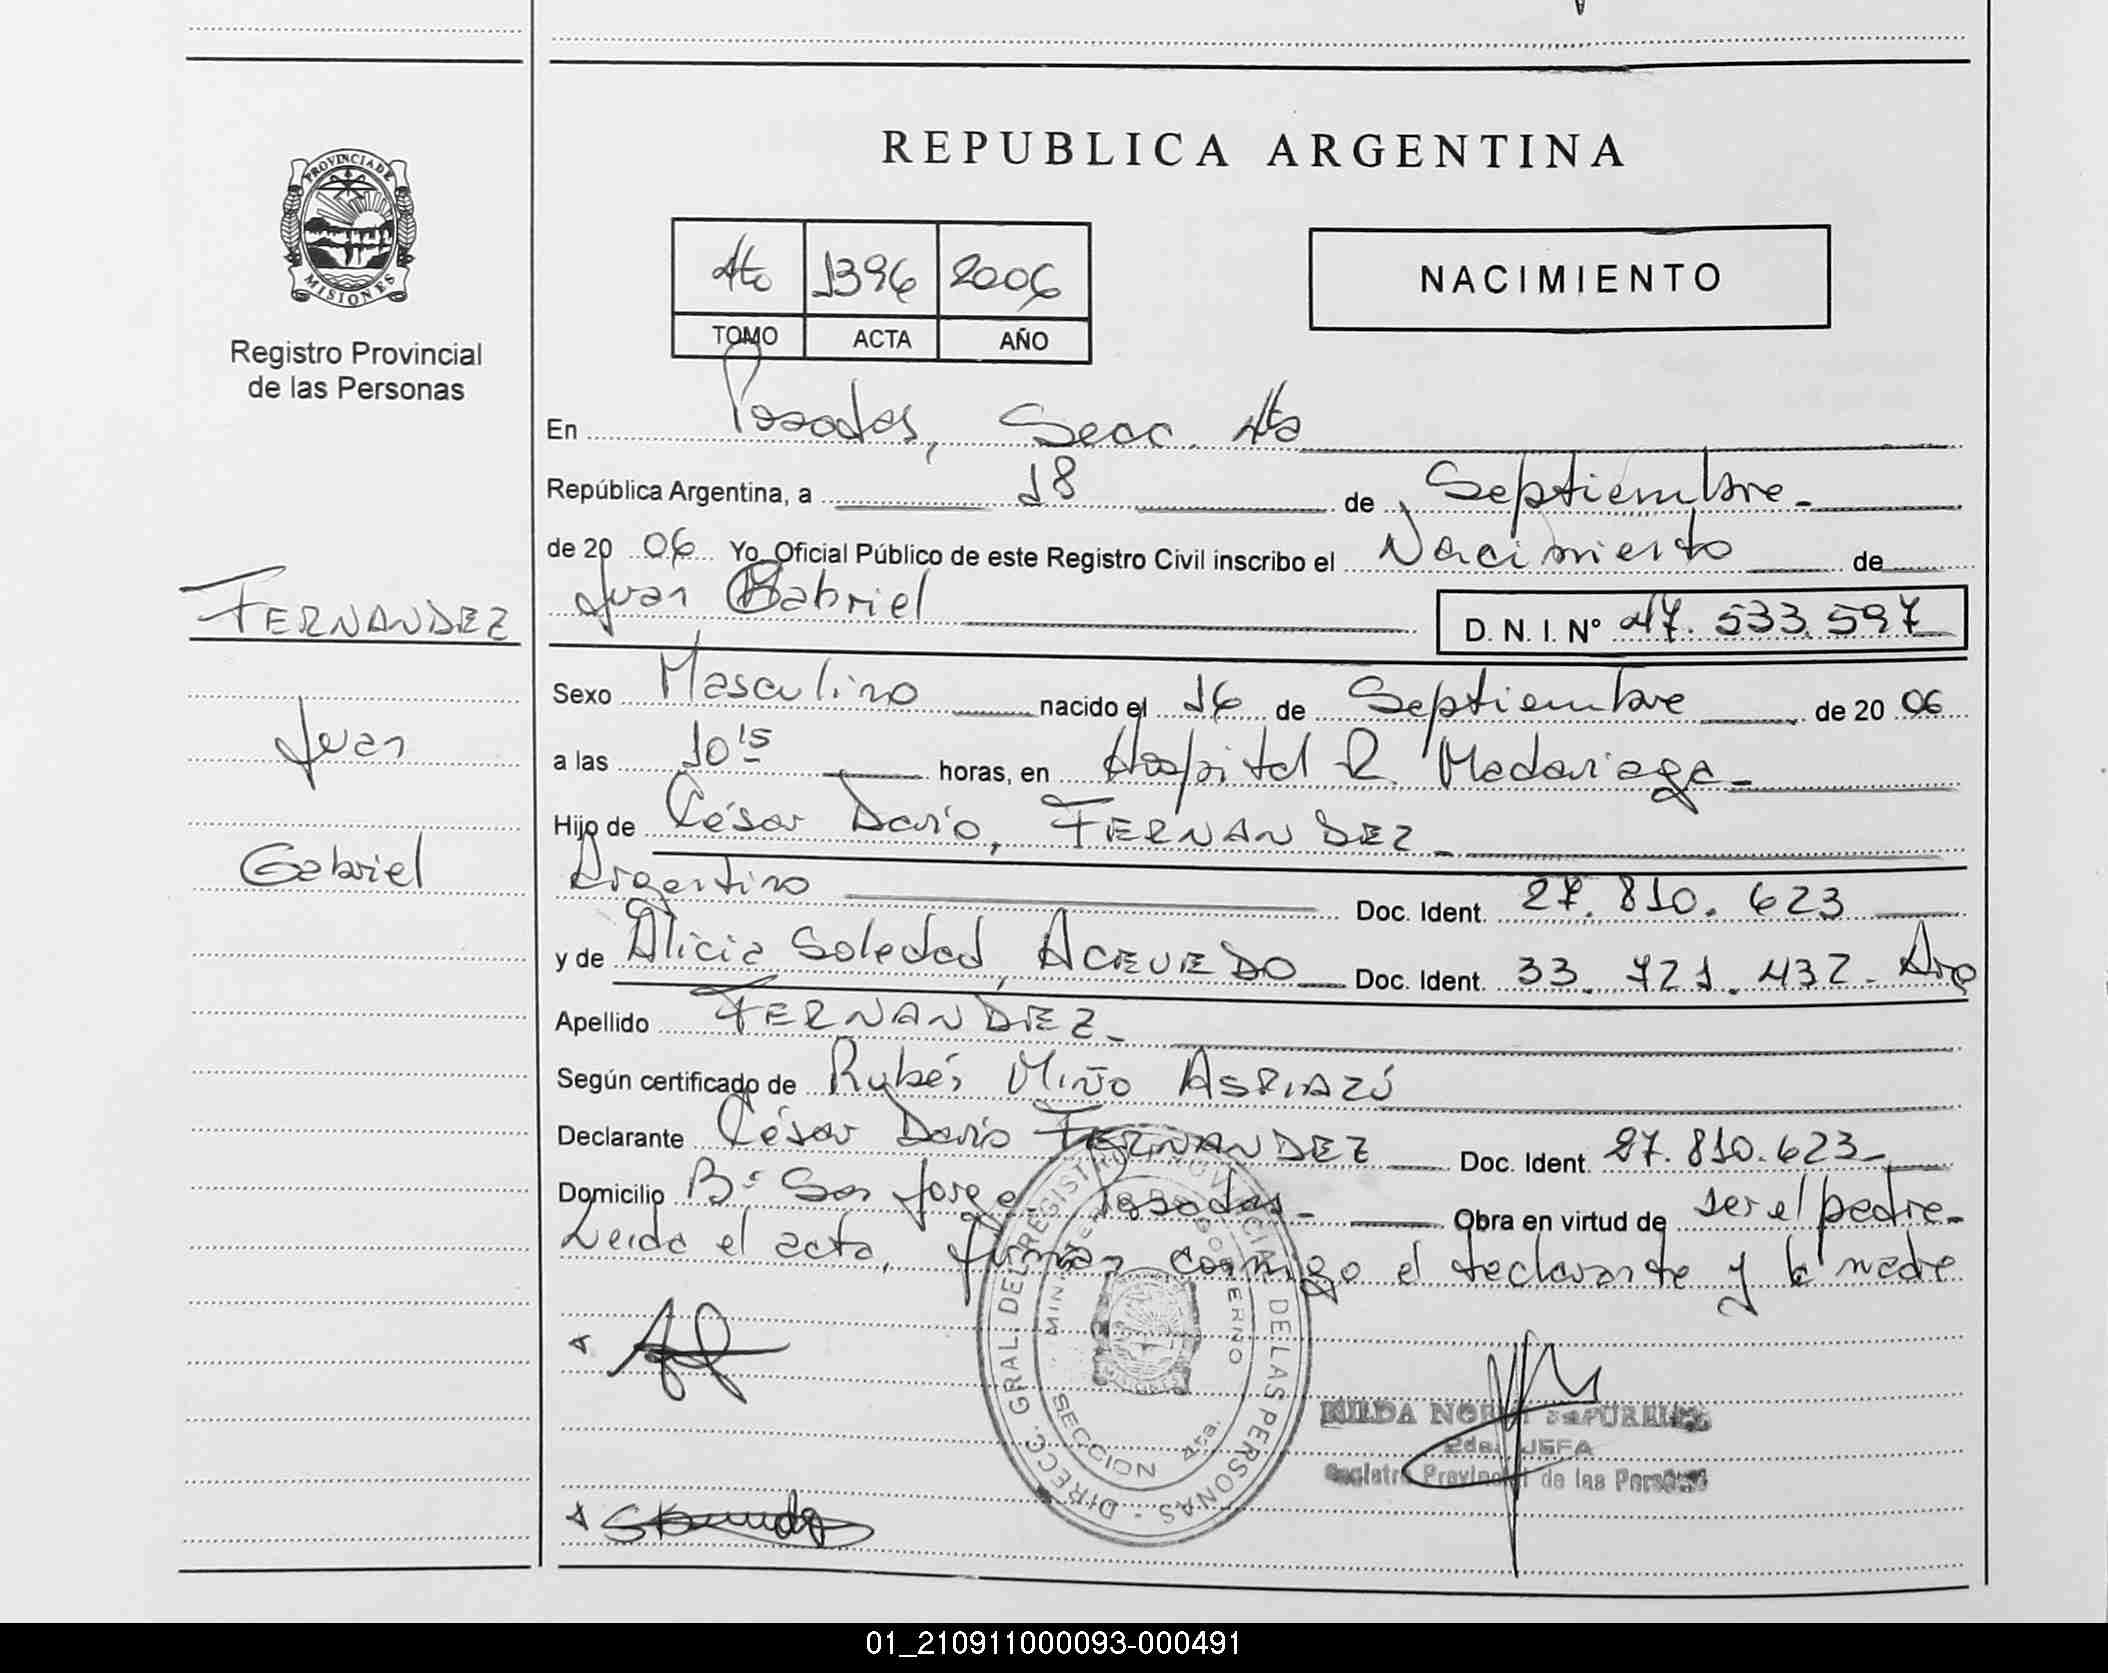 REPUBLICA ARGENTINA
PROVINCIA DE
MISIONES
Registro Provincial
de las Personas
4to 1396 2006
TOMO ACTA AÑO
NACIMIENTO
En Posadas, Secc. 4ta
República Argentina, a 18 de Septiembre
de 2006 Yo, Oficial Público de este Registro Civil inscribo el Nacimiento de
Juan Gabriel D. N. I. Nº 47.533.597
FERNANDEZ
Juan
Gabriel
Sexo Masculino nacido el 16 de Septiembre de 2006
a las 10 15 horas, en Hospital R. Madariaga
Hijo de César Darío, FERNANDEZ
Argentino Doc. Ident. 27.810.623
y de Alicia Soledad, ACEVEDO Doc. Ident. 33.721.432. Arg
Apellido FERNANDEZ
Según certificado de Rubén Miño
Declarante César Darío FERNANDEZ Doc. Ident. 27.810.623
Domicilio Bº San Jorge. Posadas. Obra en virtud de ser el padre.
Leida el acta, firman conmigo el declarante y la madre
DIRECC. GRAL. DEL REGISTRO PROVINCIAL DE LAS PERSONAS
MINISTERIO DE GOBIERNO
MISIONES
SECCION 4ta.
2da. JEFA
Registro Provincial de las Personas
01_210911000093-000491